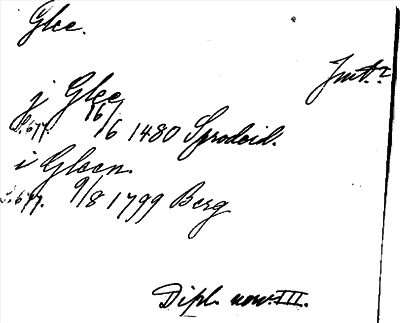 Glee.
Jmt. 2
j Glee
S. 677. 16/6 1480 Sprodeid.
i Gloen.
S. 677. 9/8 1799 Berg
Dipl. norv. III.